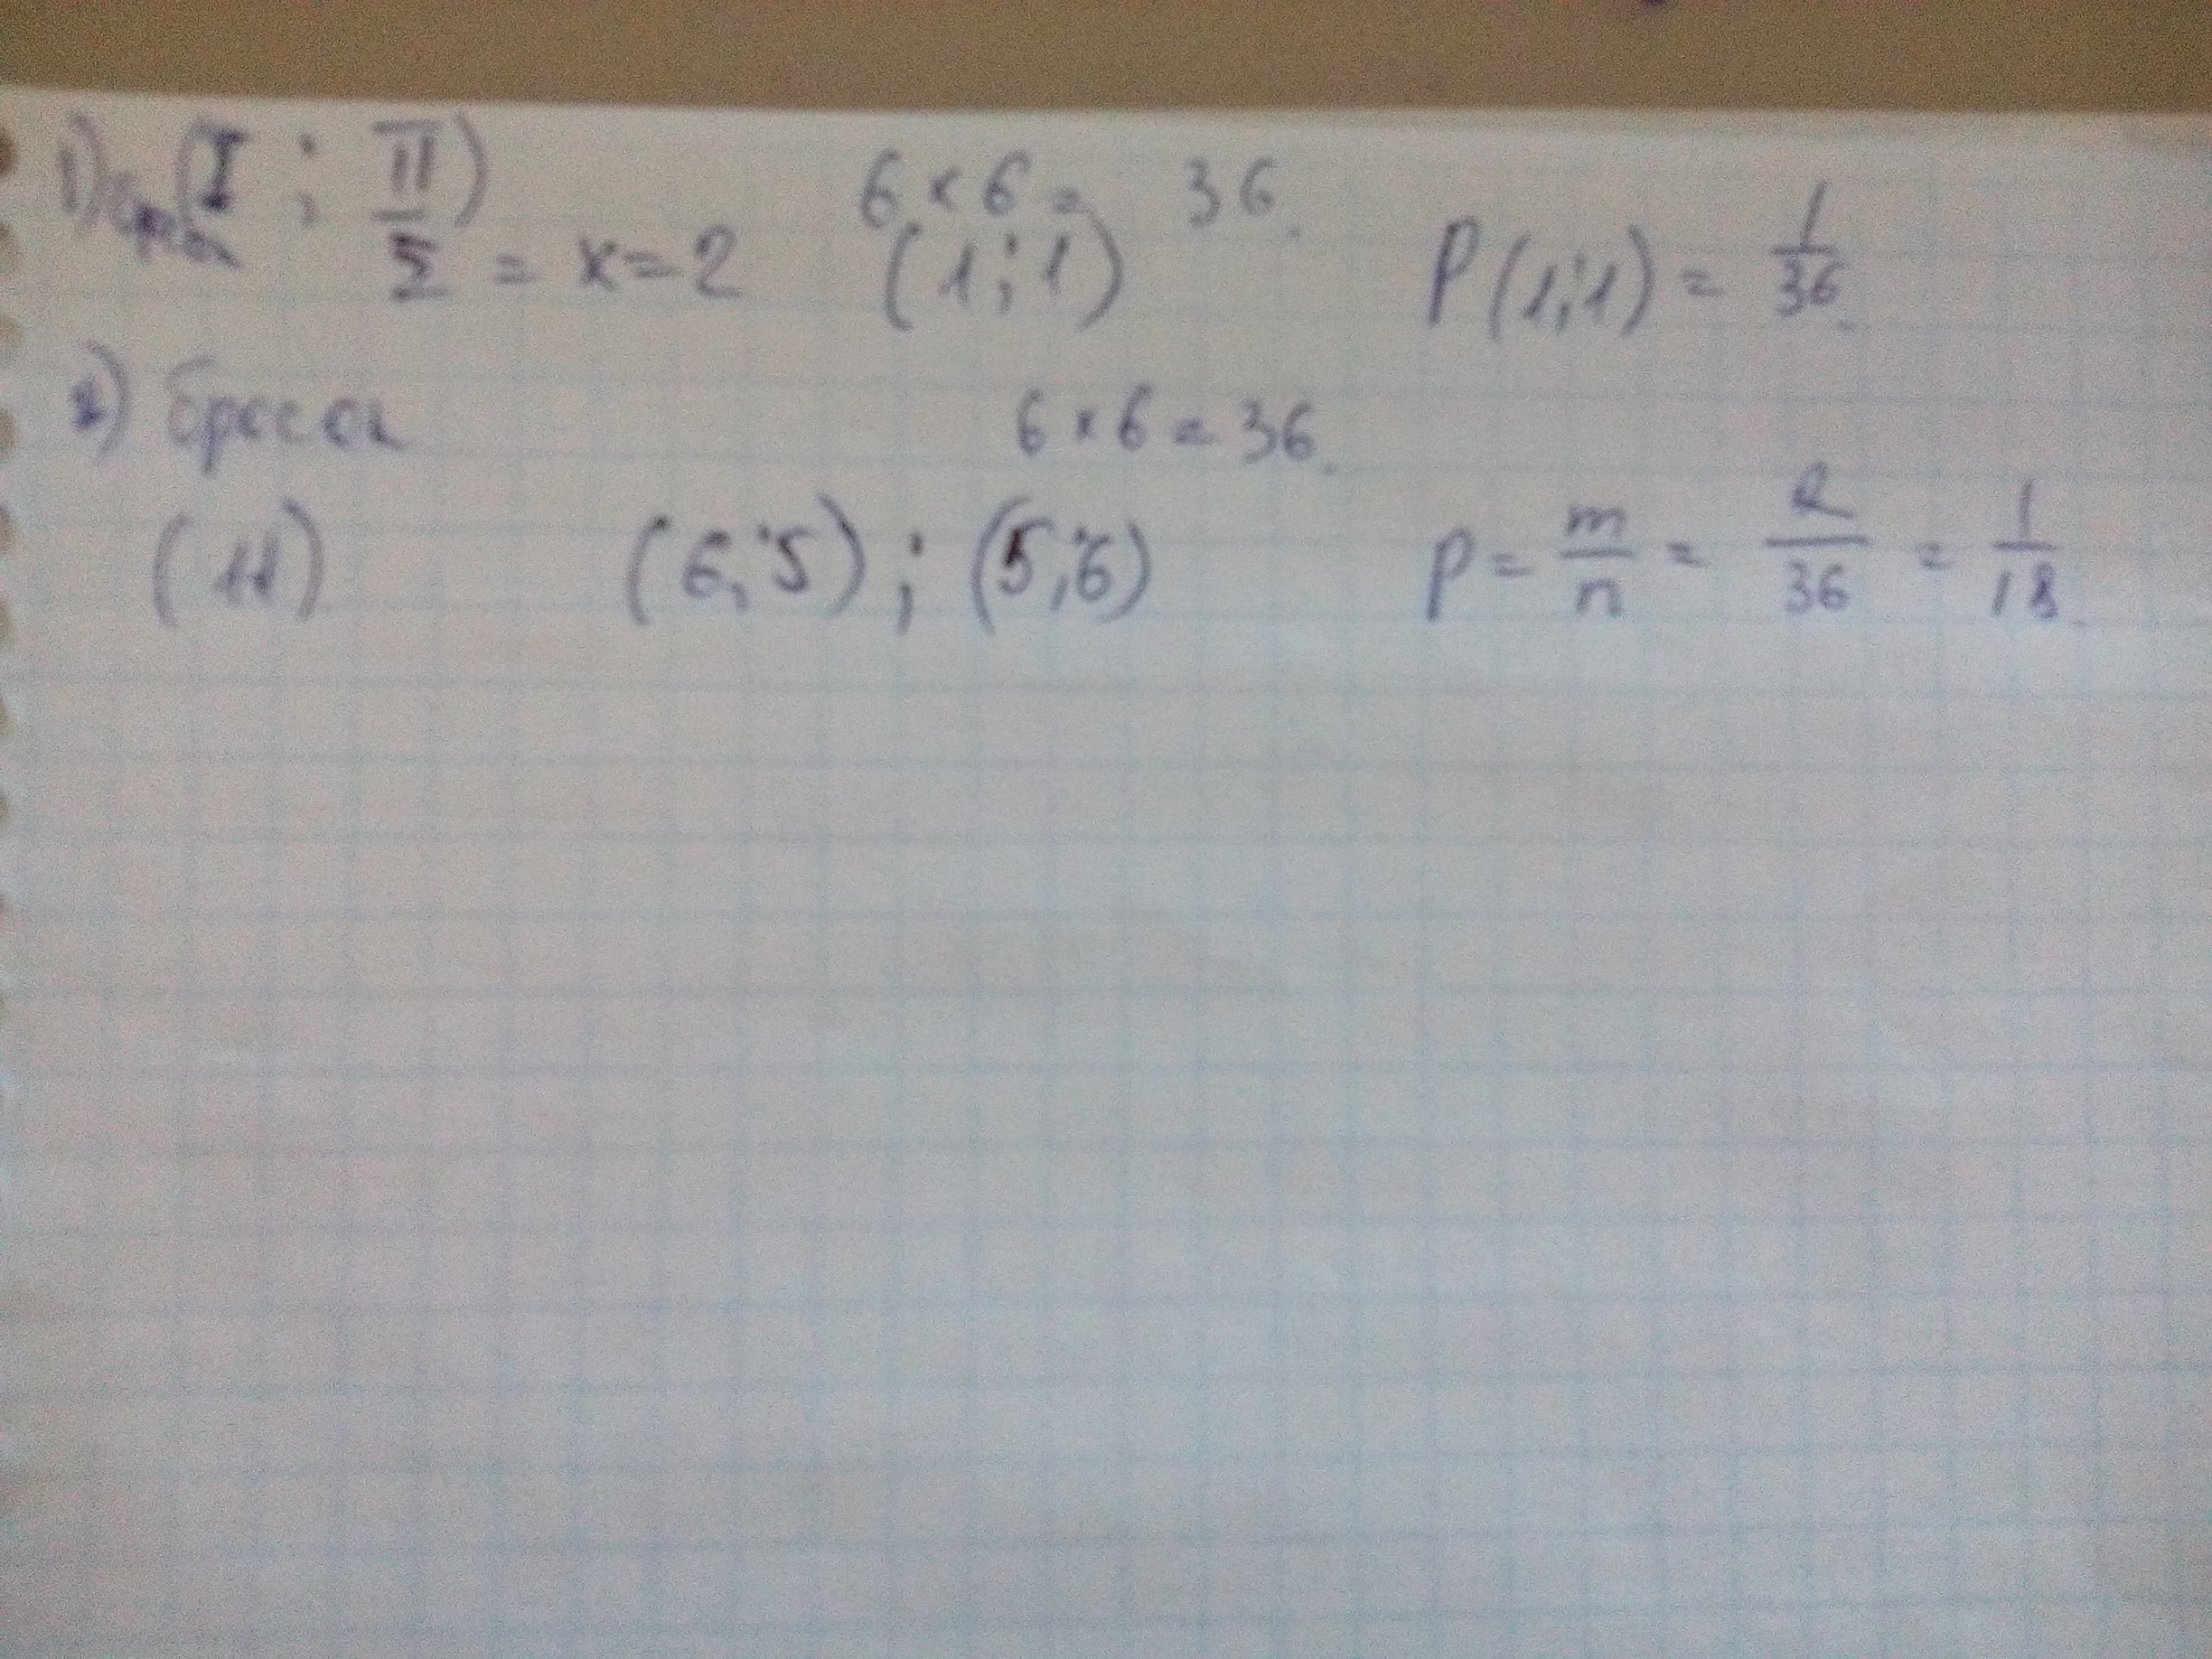 1) Бросок (I ; II) 6 × 6 = 36.
Σ = x = 2 (1; 1) P (1; 1) = 1/36.
2) Бросок 6 × 6 = 36.
(11) (6; 5) ; (5; 6) P = m/n = 2/36 = 1/18.